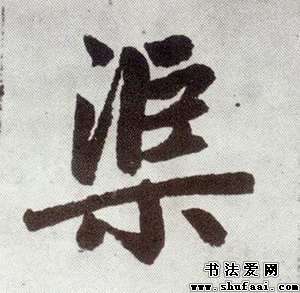 渠
书法爱网
www.shufaai.com